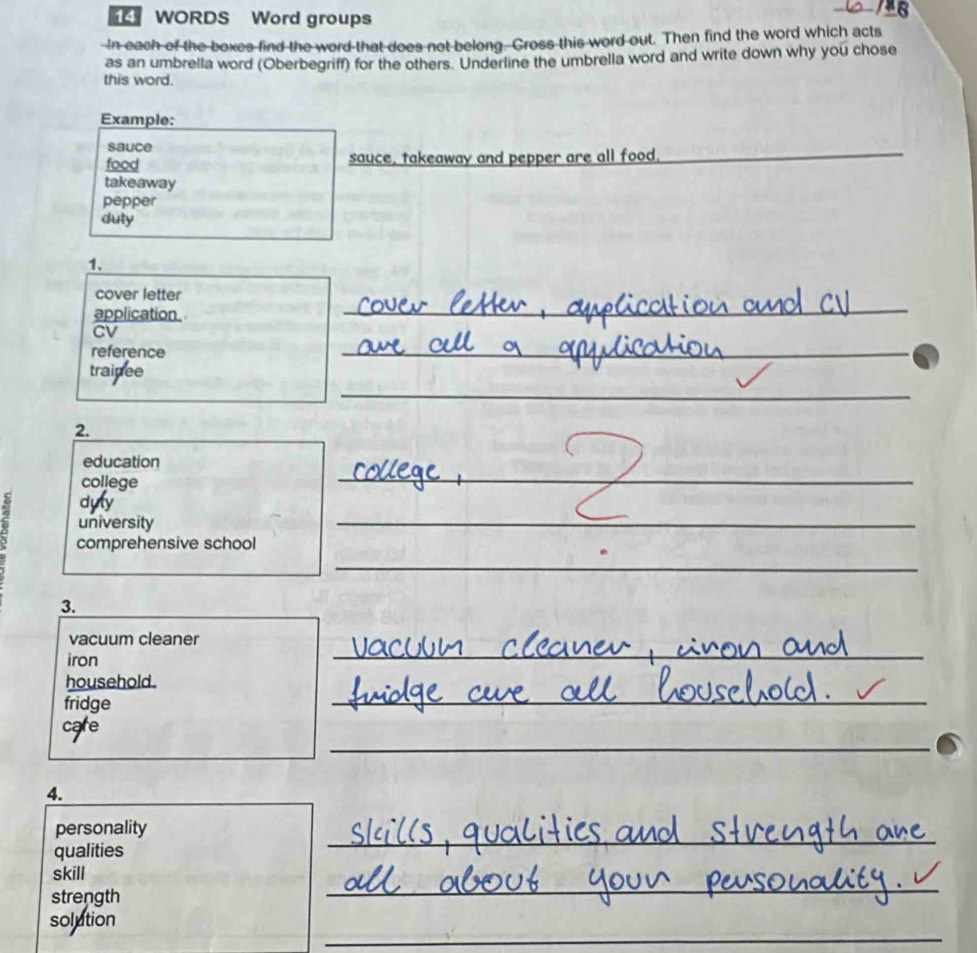 14 WORDS Word groups
In each of the boxes find the word that does not belong. Cross this word out. Then find the word which acts
as an umbrella word (Oberbegriff) for the others. Underline the umbrella word and write down why you chose
this word.
Example:
sauce
food
takeaway
pepper
duty
sauce, takeaway and pepper are all food.
1.
cover letter
application
CV
reference
trainee
cover letter, application and CV
are all a application
2.
education
college
duty
university
comprehensive school
college,
?
3.
vacuum cleaner
iron
household
fridge
cafe
vacuum cleaner, iron and
fridge are all household.
4.
personality
qualities
skill
strength
solution
skills, qualities, and strength are
all about your personality.